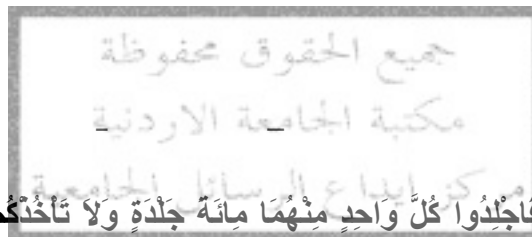 جميع الحقوق محفوظة
مكتبة الجامعة الاردنية
مركز ايداع الرسائل الجامعية
فَاجْلِدُوا كُلَّ وَاحِدٍ مِنْهُمَا مِائَةَ جَلْدَةٍ وَلَا